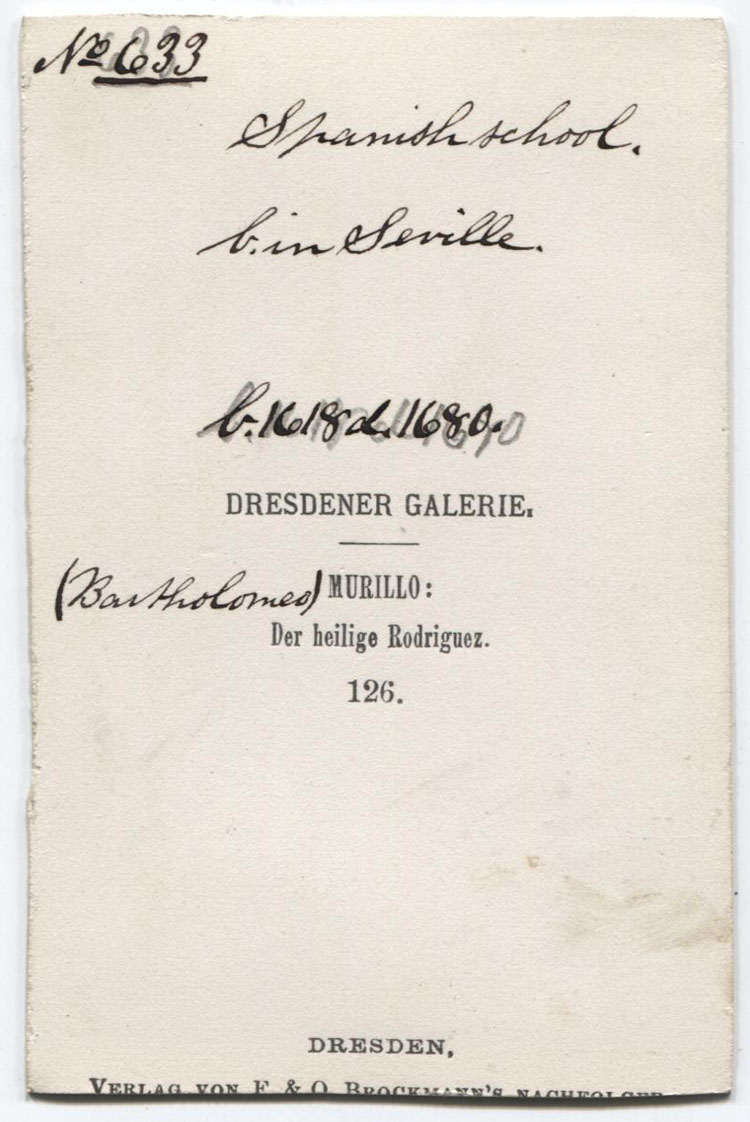 No 633
Spanish school.
b. in Seville.
b. 1618 d. 1680.
DRESDENER GALERIE.
(Bartholomeo) MURILLO:
Der heilige Rodriguez.
126.
DRESDEN,
VERLAG VON F. & O. BROCKMANN'S NACHFOLGER